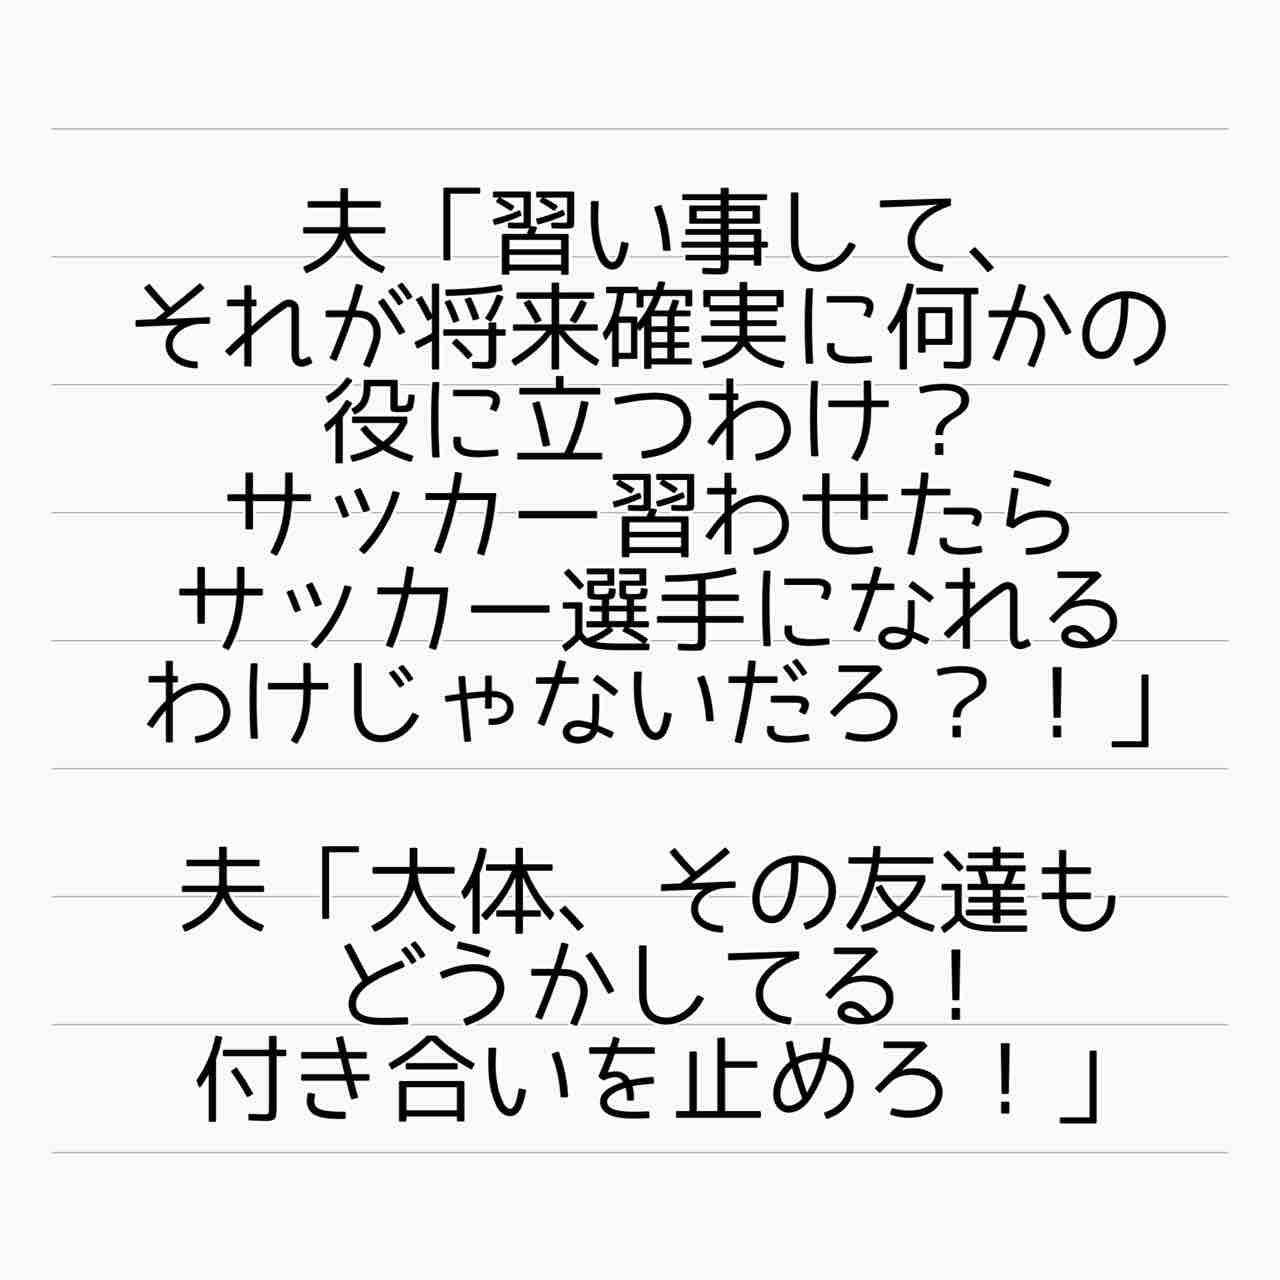 夫「習い事して、
それが将来確実に何かの
役に立つわけ？
サッカー習わせたら
サッカー選手になれる
わけじゃないだろ？！」
夫「大体、その友達も
どうかしてる！
付き合いを止めろ！」